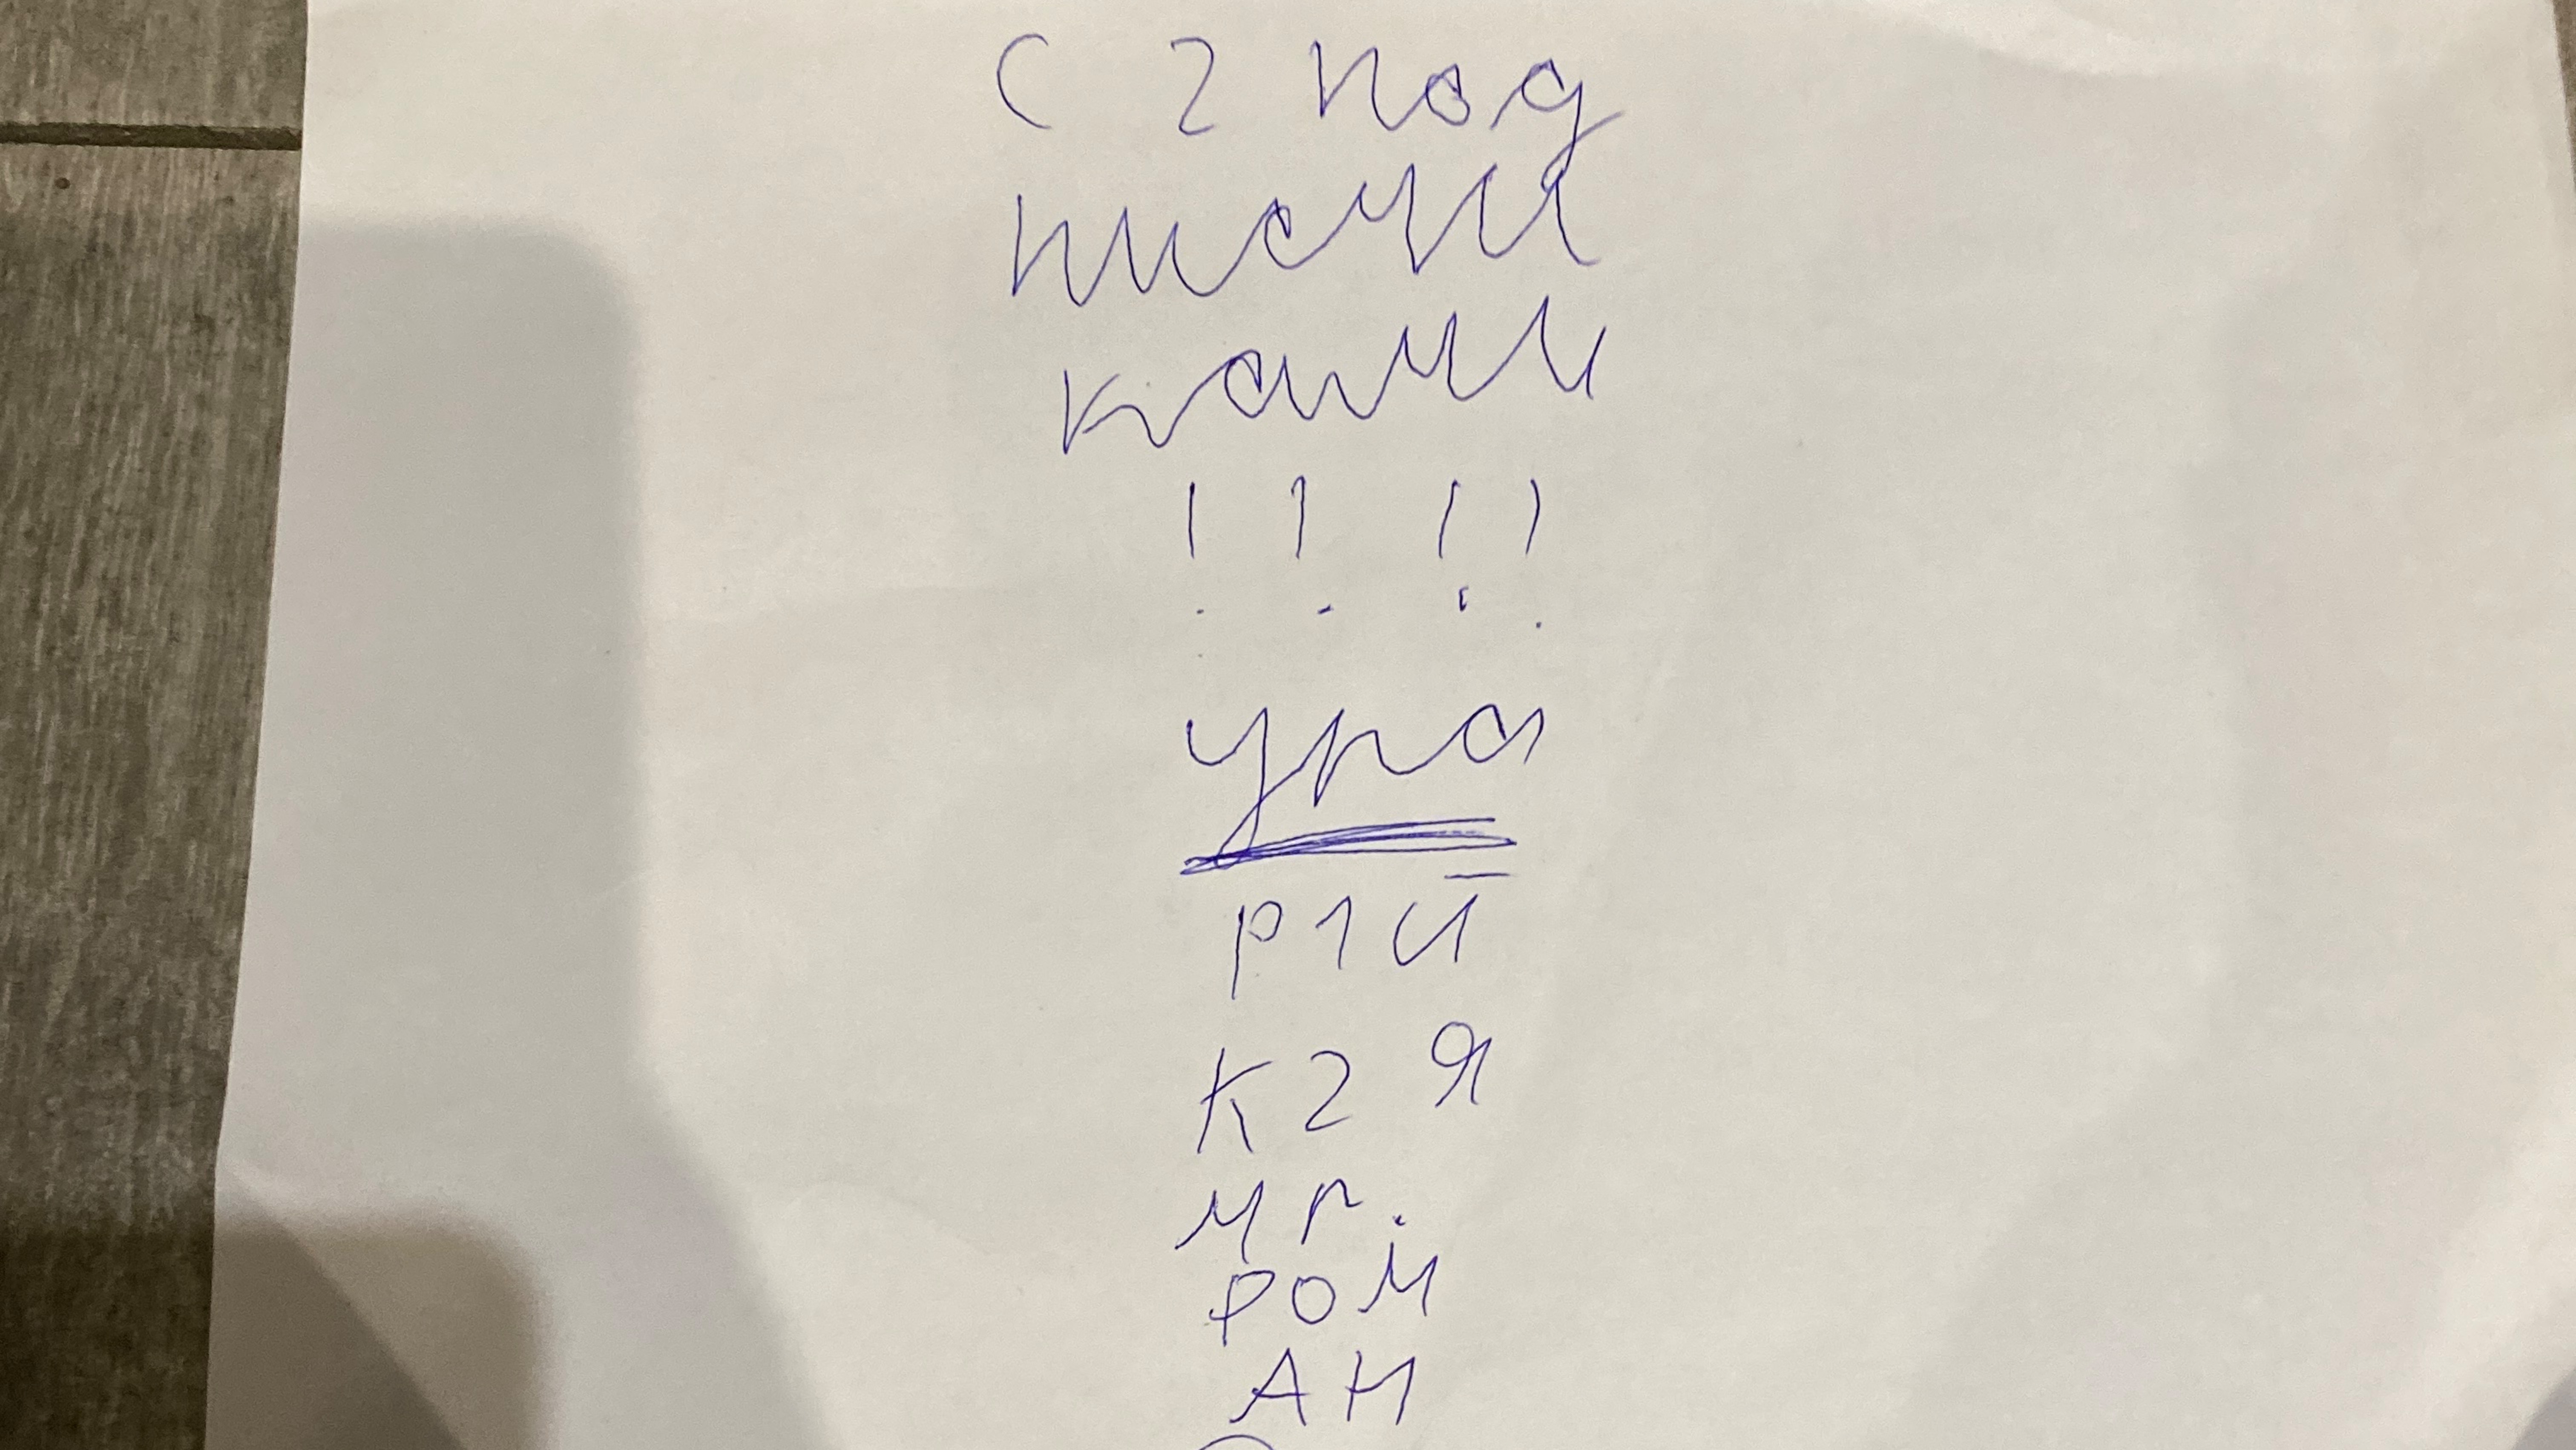 С 2 под
писчи
ками
! ! ! !
ура
р1й
к2я
мг.
РОМ
АН